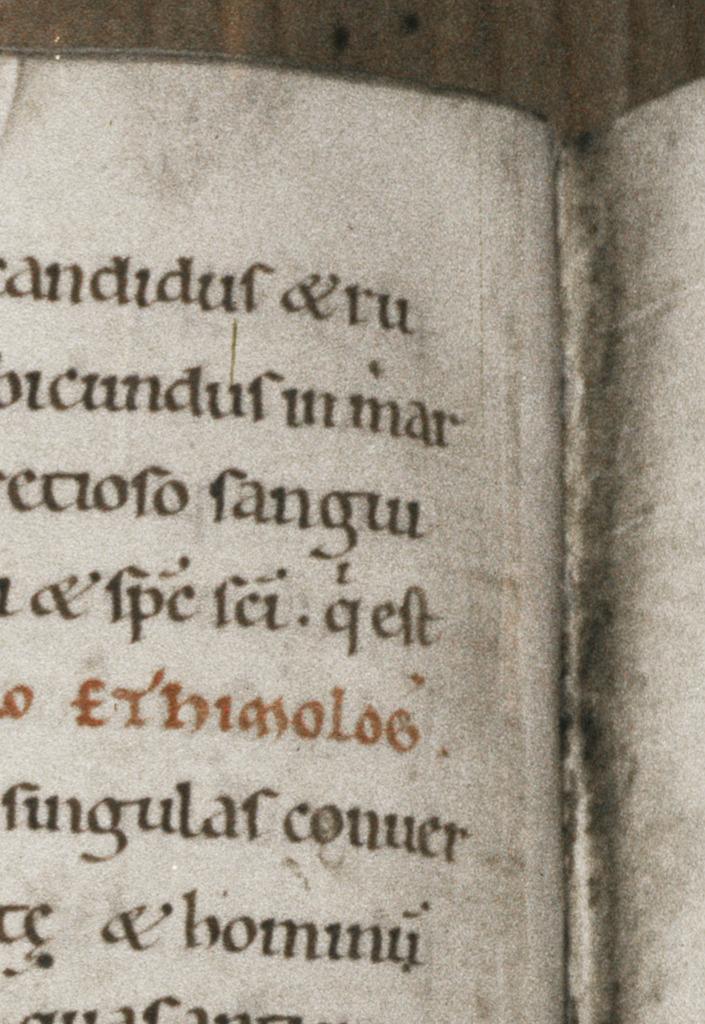 candidus & ru
bicundus in mar
retioso sangui
& sp̄c sc̄i. qͥ est
o ETHIMOLOḠ.
singulas conuer
tę & hominū
quasantu